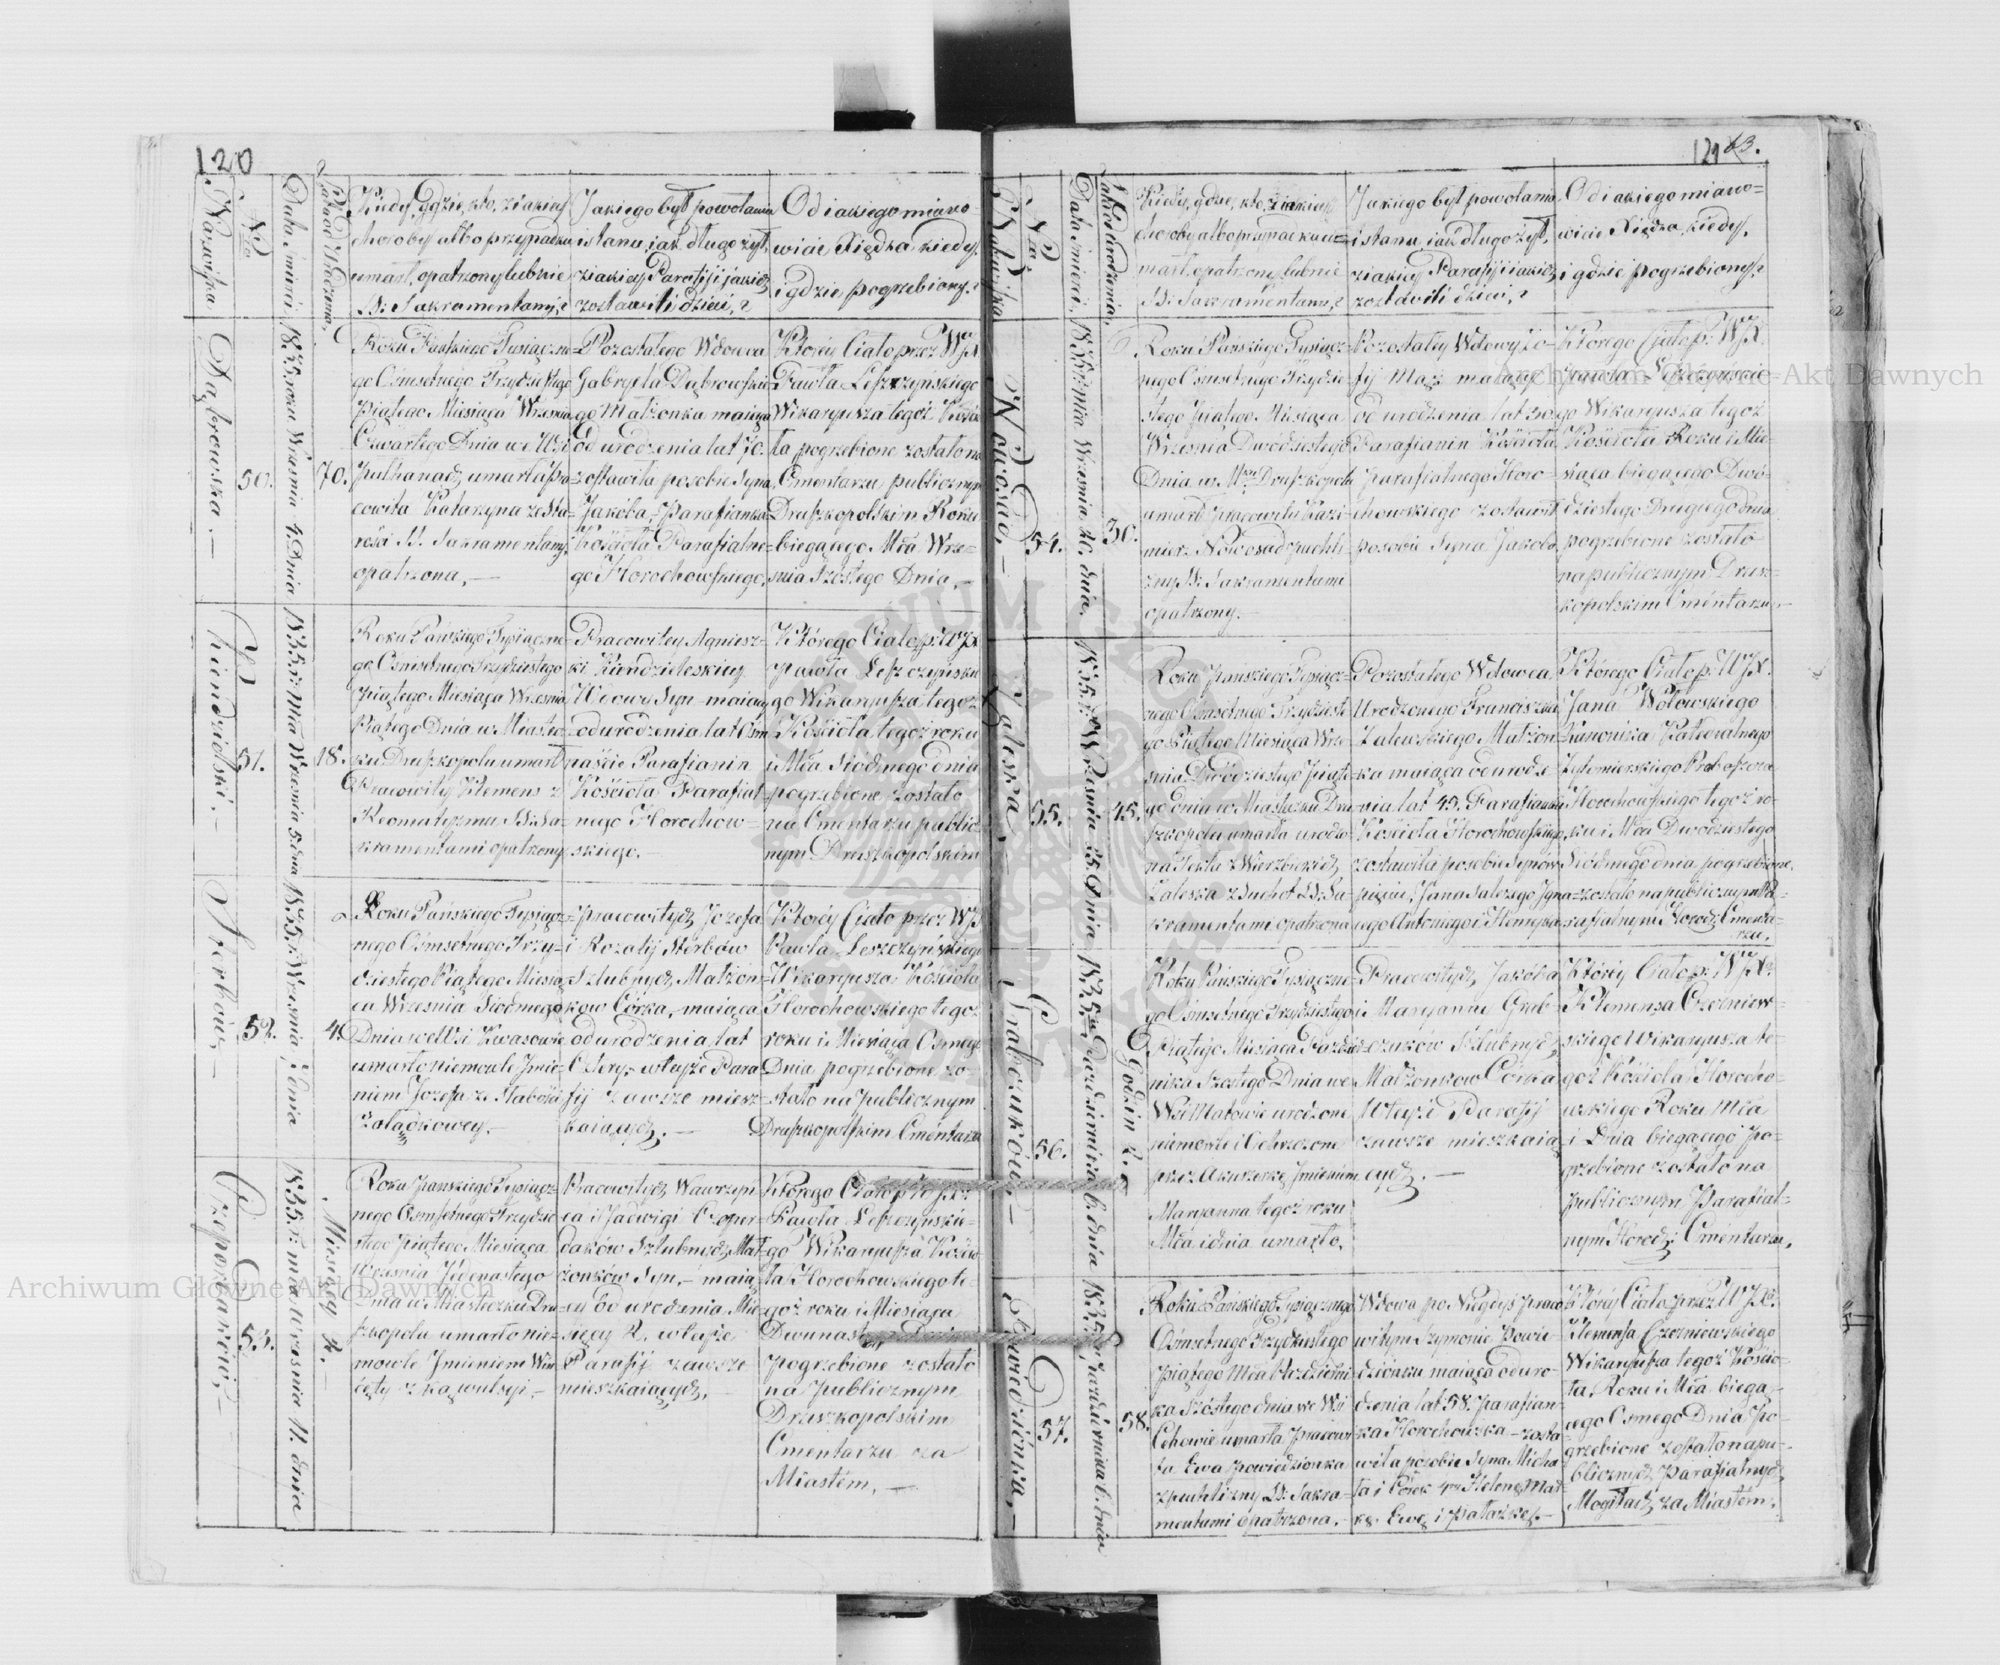 120
Nazwiska
Nro
Data śmierci
Lata od Urodzenia.
Kiedy, gdzie, kto, z iakiey
choroby albo przypadku
umarł, opatrzony lub nie
SS: Sakramentami,?
Jakiego był powołania
i stanu, iak długo żył,
z iakiey Parafiji i iakich
zostawił dzieci,?
Od iakiego miano-
wicie Xiędza, kiedy,
i gdzie pogrzebiony,?
Dąbrowska.—
50.
1835. roku Września 4. Dnia
70.
Roku Pańskiego Tysiączne-
go Ośmsetnego Trzydziestego
Piątego Miesiąca Września
Czwartego Dnia we Wsi
umarła Pra-
cowita Katarzyna ze sta-
rości SS. Sakramentami
opatrzona,—
Pozostałego Wdowca
Gabryela Dąbrowskie-
go Małżonka maiąca
od urodzenia lat 70.
zostawiła po sobie Syna
Jakóba,- Parafianka
Kościoła Parafialne-
go Horochowskiego,
Którey Ciało przez WJX
Pawła Leszczyńskiego
Wikaryusza tegoż Kościo-
ła pogrzebione zostało na
Cmentarzu publicznym
Druszkopolskim Roku
biegącego Mca Wrze-
śnia Szóstego Dnia,—
Kiendzielski.—
51.
1835. r: Mca Września 5. dnia
18.
Roku Pańskiego Tysiączne-
go Ośmsetnego Trzydziestego
Piątego Miesiąca Września
Piątego Dnia w Miastecz-
ku Druszkopolu umarł
Pracowity Klemens z
Reomatyzmu SS: Sa-
kramentami opatrzony
Pracowitey Agniesz-
ki Kiendzielskiey
Wdowy Syn maiący
od urodzenia lat Ośm
naście Parafianin
Kościoła Parafial-
nego Horochow-
skiego.—
Którego Ciało p: WJX
Pawła Leszczyńskie-
go Wikaryusza tegoż
Kościoła tegoż roku
i Mca Siódmego dnia
pogrzebione zostało
na Cmentarzu public-
nym Druszkopolskim
Sterbów,—
52.
1835. r. Września 7. dnia
4.
Roku Pańskiego Tysiącz-
nego Ośmsetnego Trzy-
dziestego Piątego Miesią-
ca Września Siódmego
Dnia we Wsi Kwasowie
umarło niemowle Jmie-
niem Jozefa z Słabości
żołądkowey.—
Pracowitych Jozefa
i Rozalij Sterbów
Szlubnych Małżon-
kow Córka,- maiąca
od urodzenia, lat
Cztery,- w teyże Para
fij zawsze miesz-
kaiących.—
Którey Ciało przez WJX
Pawła Leszczyńskiego
Wikaryusza Kościoła
Horochowskiego tegoż
roku i Miesiąca Osmego
Dnia pogrzebione zo-
stało na publicznym
Druszkopolskim Cmentarzu
53.
1835. r: mca Września 11. dnia
Miesięcy 2.—
Roku Pańskiego Tysiącz-
nego Ośmsetnego Trzydzie
stego Piątego Miesiąca
Września Jedenastego
Dnia w Miasteczku Dru-
szkopolu umarło nie-
mowle Jmieniem Win-
centy z kąwulsyi,—
Pracowitych Wawrzyń
ca i Jadwigi
Szlubnych Mał-
żonków Syn,- maią-
cy od urodzenia Mie-
sięcy 2. w teyże
Parafij zawsze
mieszkaiących.—
Którego Ciało p: WJX:
Pawła Leszczyńskie-
go Wikaryusza Kościo-
ła Horochowskiego te-
goż roku i Miesiąca
Dwunastego Dnia
pogrzebione zostało
na publicznym
Druszkopolskim
Cmentarzu za
Miastem,—
121 63.
Nazwiska
Nro
Data śmierci,
Lata od Urodzenia,
Kiedy, gdzie, kto, z iakiey
choroby albo przypadku u-
marł, opatrzony lub nie
SS: Sakramentami,?
Jakiego był powołania
i stanu, iak długo żył,
z iakiey Parafij i iakich
zostawił dzieci,?
Od iakiego miano-
wicie Xiędza, kiedy,
i gdzie pogrzebiony,?
Nowosad,—
54.
1835. r: mca Września 20. dnia
30.
Roku Pańskiego Tysiącz-
nego Ośmsetnego Trzydzie
stego Piątego Miesiąca
Września Dwudziestego
Dnia w Mku Druszkopolu
umarł Pracowity Kazi-
mierz Nowosad z puchli-
zny SS: Sakramentami
opatrzony.—
Pozostałey Wdowy Zo-
fij Mąż maiący
od urodzenia lat 30
Parafianin Kościoła
Parafialnego Horo-
chowskiego zostawił
po sobie Syna Jakóba
Którego Ciało p: WJX.
Pawła Leszczyńskie-
go Wikaryusza tegoż
Kościoła Roku i Mie-
siąca biegącego Dwó-
dziestego Drugiego dnia
pogrzebione zostało
na publicznym Drusz-
kopolskim Cmentarzu.—
Zaleska,—
55.
1835. r: Września 25. Dnia
45.
Roku Pańskiego Tysiącz-
nego Ośmsetnego Trzydzieste
go Piątego Miesiąca Wrze-
śnia Dwódziestego Piąte-
go dnia w Miasteczku Dru
szkopolu umarła urodzo-
na Tekla z Wierzbickich
Zaleska z Suchot SS: Sa-
kramentami opatrzona
Pozostałego Wdowca
Urodzonego Franciszka
Zalewskiego Małżon-
ka maiąca od urodze-
nia lat 45. Parafianka
Kościoła Horochowskiego
zostawiła po sobie Synów
pięciu, Jana Salezego Igna-
cego Antoniego i Henryka
Którego Ciało p: WJX.
Jana Wołowskiego
Kanonika Katedralnego
Żytomierskiego Proboszcza
Horochowskiego tegoż ro-
ku i Mca Dwudziestego
Siódmego dnia pogrzebione
zostało na publicznym Pa-
rafialnym Horoch: Cmenta-
rzu,
56.
1835. r. Października 6. dnia
Godzin 2.
Roku Pańskiego Tysiączne-
go Ośmsetnego Trzydziestego
Piątego Miesiąca Paździer-
nika Szóstego Dnia we
Wsi Małowie urodzone
niemowle i Ochrzczone
przez Akuszerkę Jmieniem
Maryanna tegoż roku
Mca i dnia umarło,
Pracowitych Jakóba
i Maryanny Grab-
czuków Szlubnych
Małżonkow Córka
W teyże Parafij
zawsze mieszkaią
cych.—
Którey Ciało p: WJXa
Klemensa Czerniew-
skiego Wikaryusza te-
goż Kościoła Horocho-
wskiego Roku Mca
i Dnia biegącego po-
grzebione zostało na
publicznym Parafial-
nym Horoch: Cmentarzu,
Powiedzionka,—
57.
1835. r. Października 6. dnia
58.
Roku Pańskiego Tysiącznego
Ośmsetnego Trzydziestego
Piątego Mca Październi
ka Szóstego dnia we Wsi
Cehowie umarła Pracowi-
ta Ewa Powiedzionka
z puchlizny SS: Sakra-
mentami opatrzona.—
Wdowa po Niegdyś Praco
witym Szymonie Powie-
dzionku maiąca od uro-
dzenia lat 58. Parafian-
ka Horochowska- zosta-
wiła po sobie Syna Micha-
ła i Córek Helenę
Ewę i Pałażkę.—
Którey Ciało przez WJXa.
Klemensa Czerniewskiego
Wikaryusza tegoż Kościo-
ła, Roku i Mca biega-
cego Osmego Dnia Po-
grzebione zostało na pu-
blicznych Parafialnych
Mogiłach za Miastem.
Archiwum Główne Akt Dawnych
Archiwum Główne Akt Dawnych